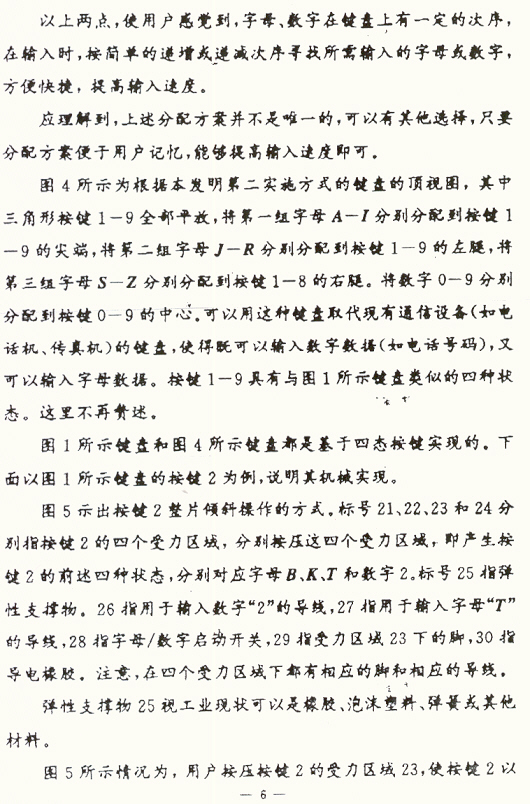 以上两点,使用户感觉到,字母、数字在键盘上有一定的次序,
在输入时,按简单的递增或递减次序寻找所需输入的字母或数字,
方便快捷,提高输入速度。
应理解到,上述分配方案并不是唯一的,可以有其他选择,只要
分配方案便于用户记忆,能够提高输入速度即可。
图4所示为根据本发明第二实施方式的键盘的顶视图,其中
三角形按键1-9全部平放,将第一组字母A-I分别分配到按键1
-9的尖端,将第二组字母J-R分别分配到按键1-9的左腿,将
第三组字母S-Z分别分配到按键1-8的右腿。将数字0-9分别
分配到按键0-9的中心。可以用这种键盘取代现有通信设备(如电
话机、传真机)的键盘,使得既可以输入数字数据(如电话号码),又
可以输入字母数据。按键1-9具有与图1所示键盘类似的四种状
态。这里不再赘述。
图1所示键盘和图4所示键盘都是基于四态按键实现的。下
面以图1所示键盘的按键2为例,说明其机械实现。
图5示出按键2整片倾斜操作的方式。标号21、22、23和24分
别指按键2的四个受力区域,分别按压这四个受力区域,即产生按
键2的前述四种状态,分别对应字母B、K、T和数字2。标号25指弹
性支撑物。26指用于输入数字“2”的导线,27指用于输入字母“T”
的导线,28指字母/数字启动开关,29指受力区域23下的脚,30指
导电橡胶。注意,在四个受力区域下都有相应的脚和相应的导线。
弹性支撑物25视工业现状可以是橡胶、泡沫塑料、弹簧或其他
材料。
图5所示情况为,用户按压按键2的受力区域23,使按键2以
— 6 —